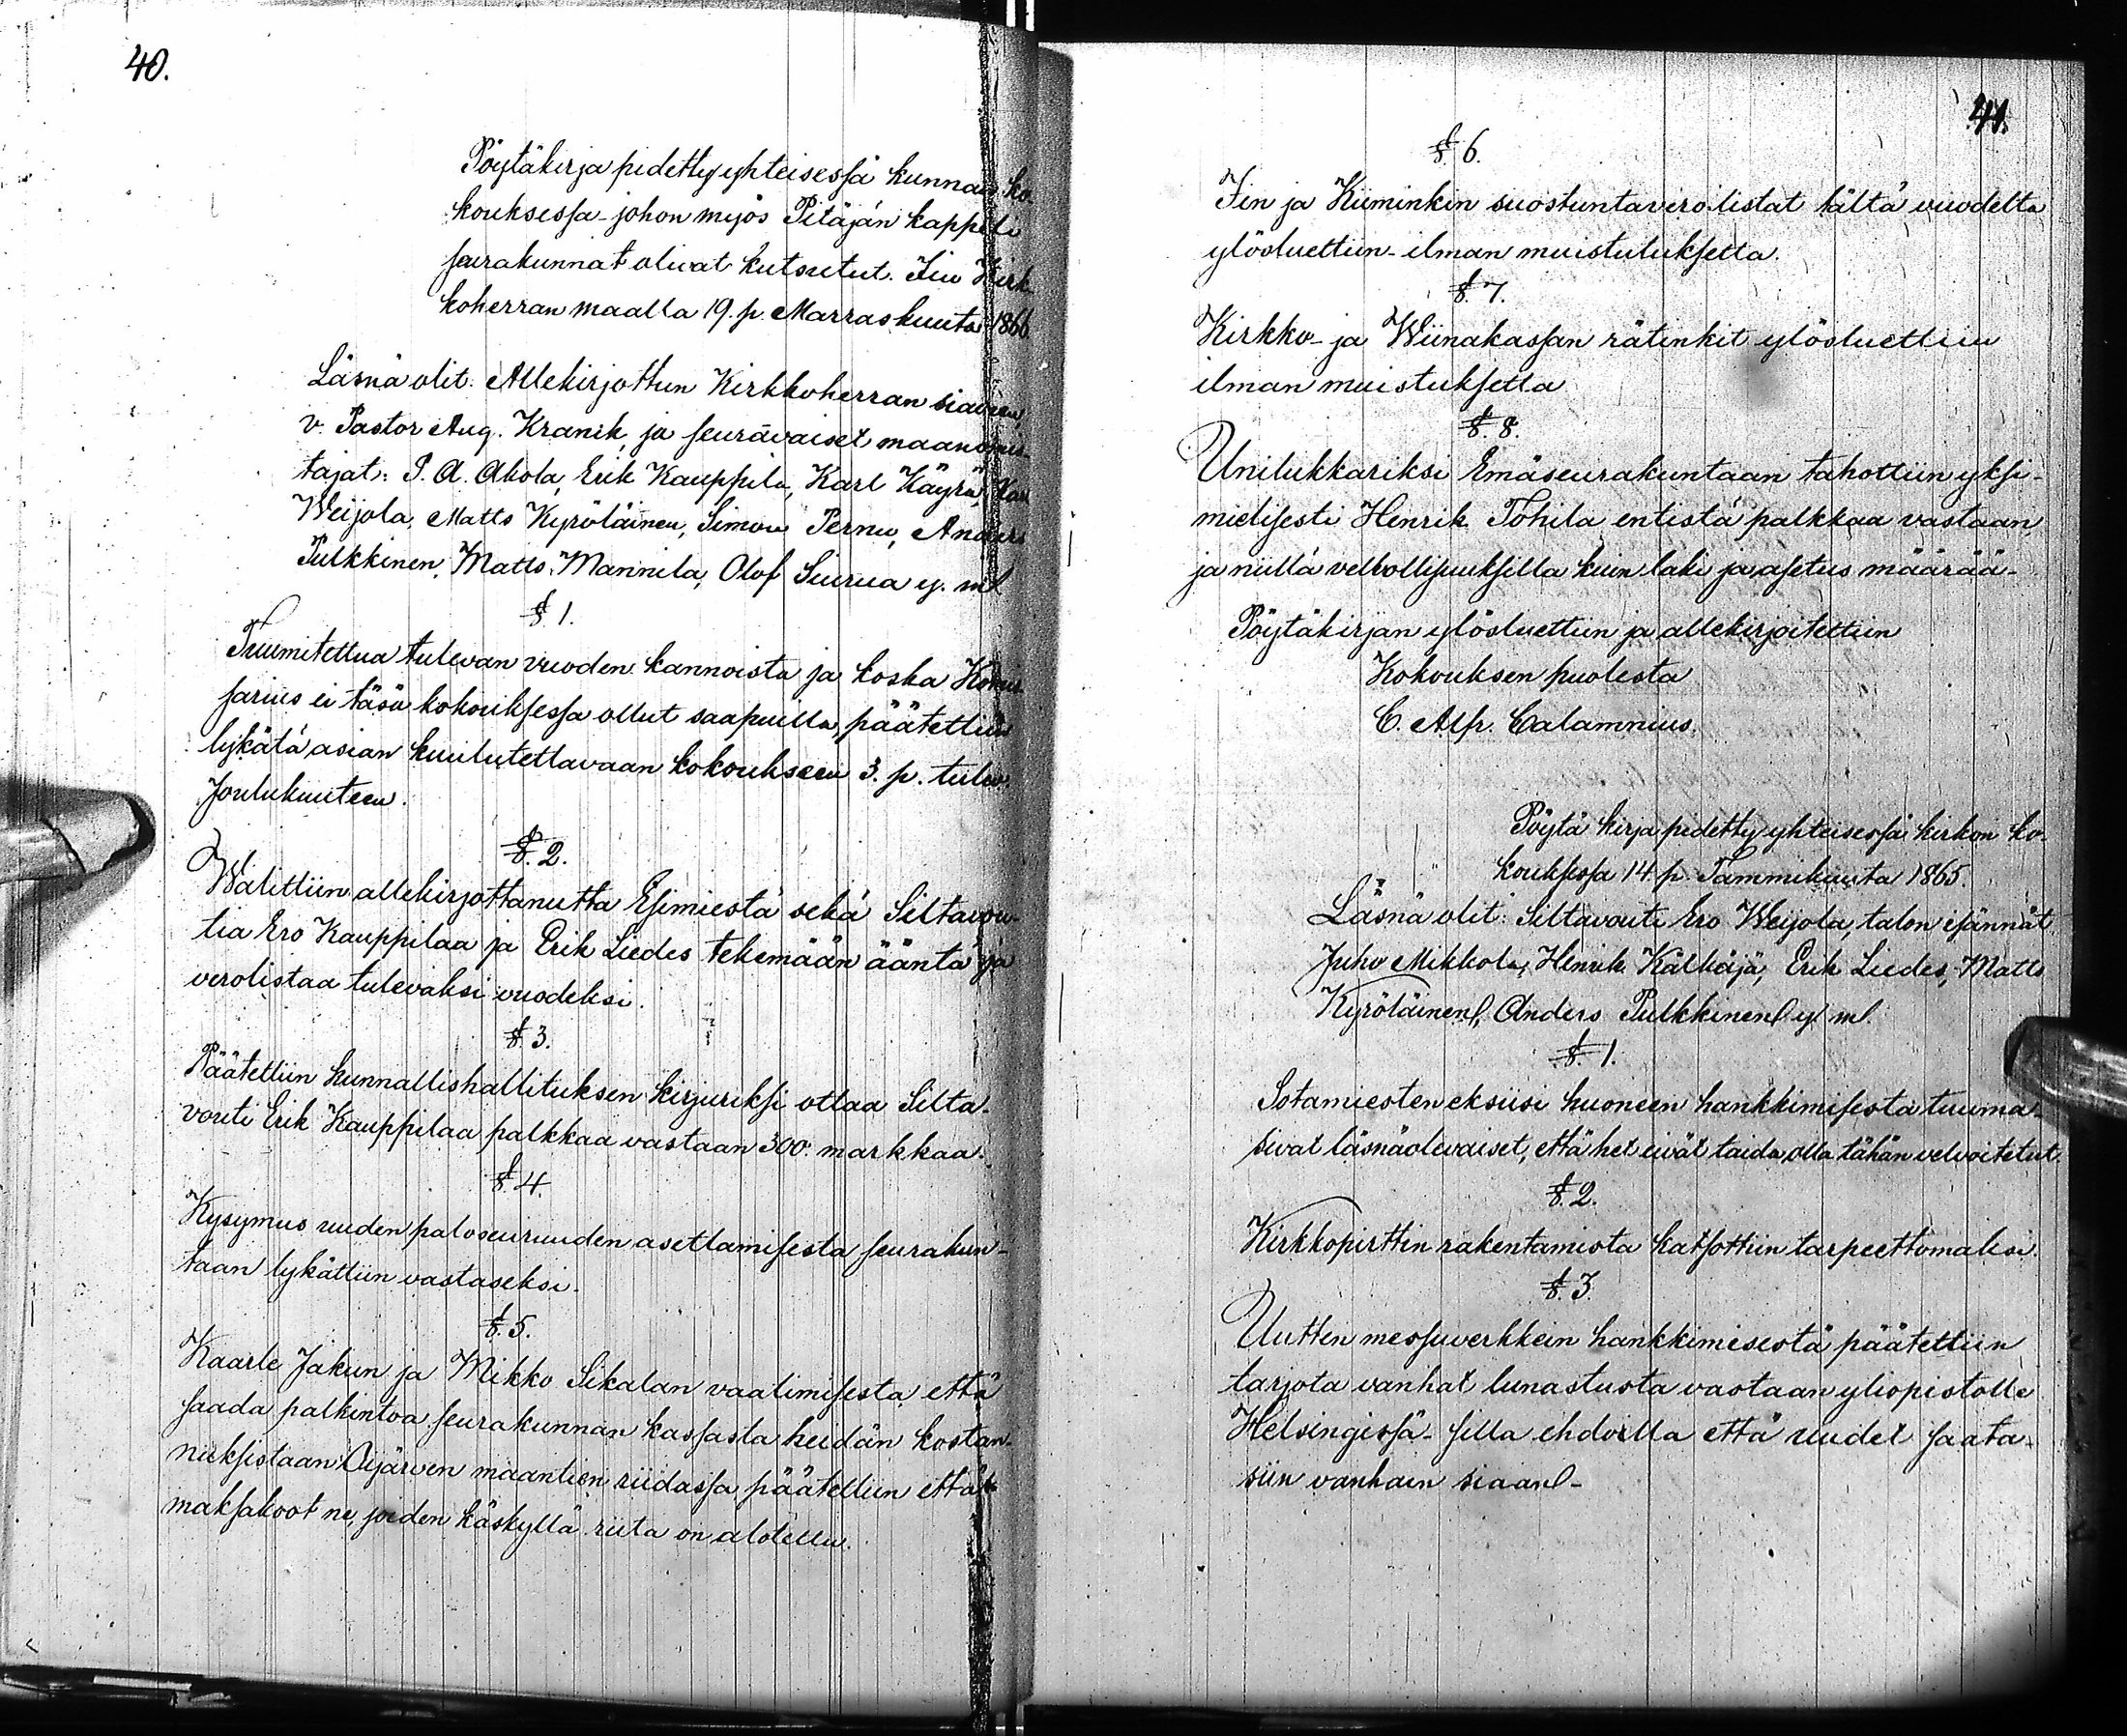 40.
Pöytäkirja pidetty yhteisessä kunnan ko-
kouksessa - johon myös Pitäjän kappeli
seurakunnat olivat kutsutut. Iin Kirk-
koherran maalla 19. p. Marraskuuta 1866
Läsnä olit: Allekirjottun Kirkkoherran siainen,
v. Pastor Aug. Kranck, ja seuravaiset maanomis-
tajat: P. A. Ahola, Erik Kauppila, Karl Käyrä, Karl
Weijola, Matts Kyröläinen, Simon Pernu, Anders
Pulkkinen, Matts Mannila, Olof Siurua y. m.
§ 1.
Tuumitettua tulevan vuoden kannoista ja koska Komis-
sarius ei täsä kokouksessa ollut saapuilla, päätettiin
lykätä asian kuulutettavaan kokoukseen 3. p. tulev.
Joulukuuten.
§. 2.
Walittiin allekirjottanutta Esimiestä sekä Siltavou-
tia Ero Kauppilaa ja Erik Liedes tekemään ääntä ja
verolistaa tulevaksi vuodeksi.
§. 3.
Päätettiin kunnallishallituksen kirjuriksi ottaa Silta-
vouti Erik Kauppilaa palkkaa vastaan 300 markkaa.
§. 4.
Kysymus uuden paloseuruuden asettamisesta seurakun-
taan lykättiin vastaseksi.
§. 5.
Kaarle Jakun ja Mikko Sikalan vaatimisesta, että
saada palkintoa seurakunnan kassasta heidän kostan-
nuksistaan Oijärven maantien riidassa päätettiin että
maksakoot ne, joiden käskyllä riita on alotettu.
41.
§. 6.
Iin ja Kiiminkin suostuntavero listat tältä vuodelta
ylösluettiin - ilman muistutuksetta.
§. 7.
Kirkko- ja Wiinakassan rätinkit ylösluettiin
ilman muistuksetta
§. 8.
Unilukkariksi Emäseurakuntaan tahottiin yksi-
mielisesti Henrik Tohila entistä palkkaa vastaan,
ja niillä velvollisuuksilla kuin laki ja asetus määrää-
Pöytäkirjan ylösluettiin ja allekirjoitettiin
Kokouksen puolesta
C. Alfr. Calamnius.
Pöytä kirja pidetty yhteisessä kirkon ko-
kouksessa 14 p. Tammikuuta 1865.
Läsnä olit: Siltavouti Ero Weijola, talon isännät
Juho Mikkola, Henrik Kälkäjä, Erik Liedes, Matts
Kyröläinen, Anders Pulkkinen y. m.
§. 1.
Sotamiesten eksiisi huoneen hankkimisesta tuuma-
sivat läsnäolevaiset, että het eivät taida olla tähän velvoitetut.
§. 2.
Kirkkopirttin rakentamista katsottiin tarpeettomaksi.
§. 3.
Uutten messuverkkein hankkimisesta päätettiin
tarjota vanhat lunastusta vastaan yliopistolle
Helsingissä - sillä ehdolla että uudet saata-
siin vanhain siaan -